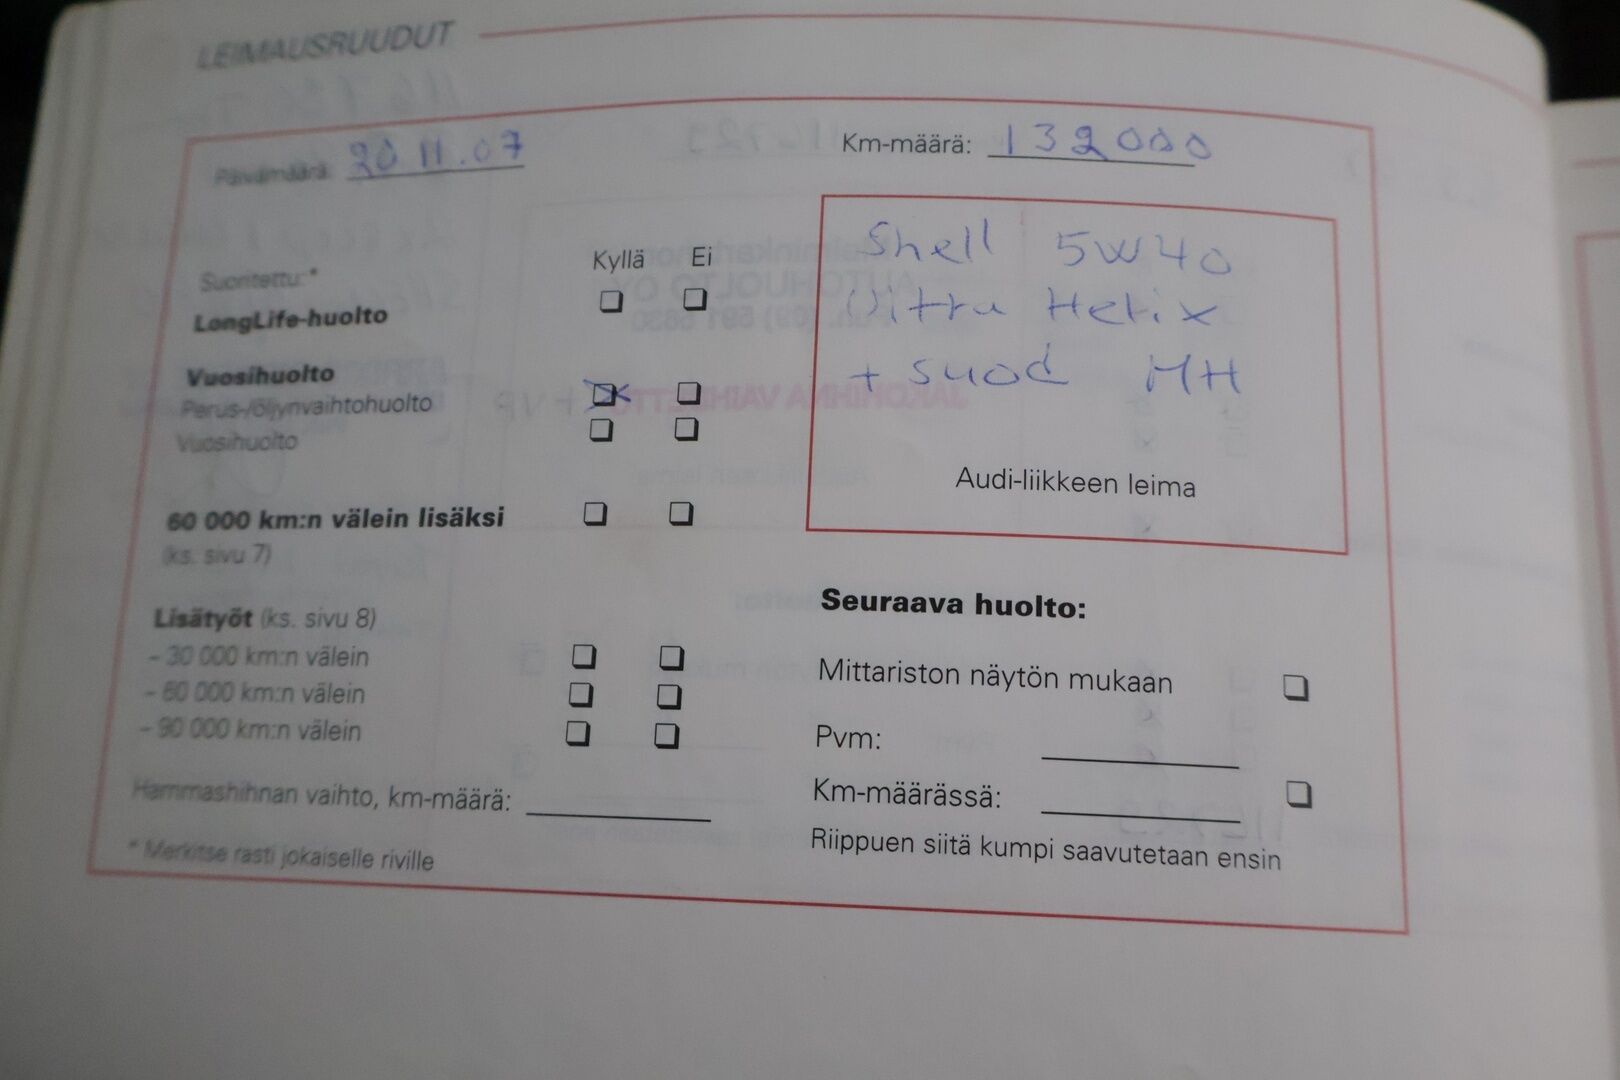 LEIMAUSRUUDUT
Päivämäärä: 20 11.07
Km-määrä: 132000
Suoritettu:*
Kyllä Ei
LongLife-huolto
Vuosihuolto
Perus-/öljynvaihtohuolto
Vuosihuolto
60 000 km:n välein lisäksi
(ks. sivu 7)
Lisätyöt (ks. sivu 8)
- 30 000 km:n välein
- 60 000 km:n välein
- 90 000 km:n välein
Hammashihnan vaihto, km-määrä:
* Merkitse rasti jokaiselle riville
Shell 5W40
Ultra Helix
+ suod MH
Audi-liikkeen leima
Seuraava huolto:
Mittariston näytön mukaan
Pvm:
Km-määrässä:
Riippuen siitä kumpi saavutetaan ensin